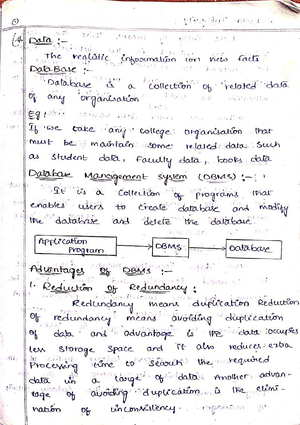 Data :-
The realistic information (or) new facts
DataBase :-
Database is a collection of related data
of any organisation
Eg:
If we take any college organisation that
must be maintain some related data such
as student data, Faculty data, books data
Database Management System (DBMS) :-
It is a collection of programs that
enables users to create database and modify
the database and delete the database
Application Program → DBMS → Database
Advantages Of DBMS :-
1. Reduction of Redundancy :
Redundancy means duplication Reduction
of redundancy means avoiding duplication
of data and advantage is the data occupies
less storage space and it also reduces extra
Processing time to search the required
data in a large of data Another advan-
tage of avoiding duplication is the elimi-
nation of inconsistency.